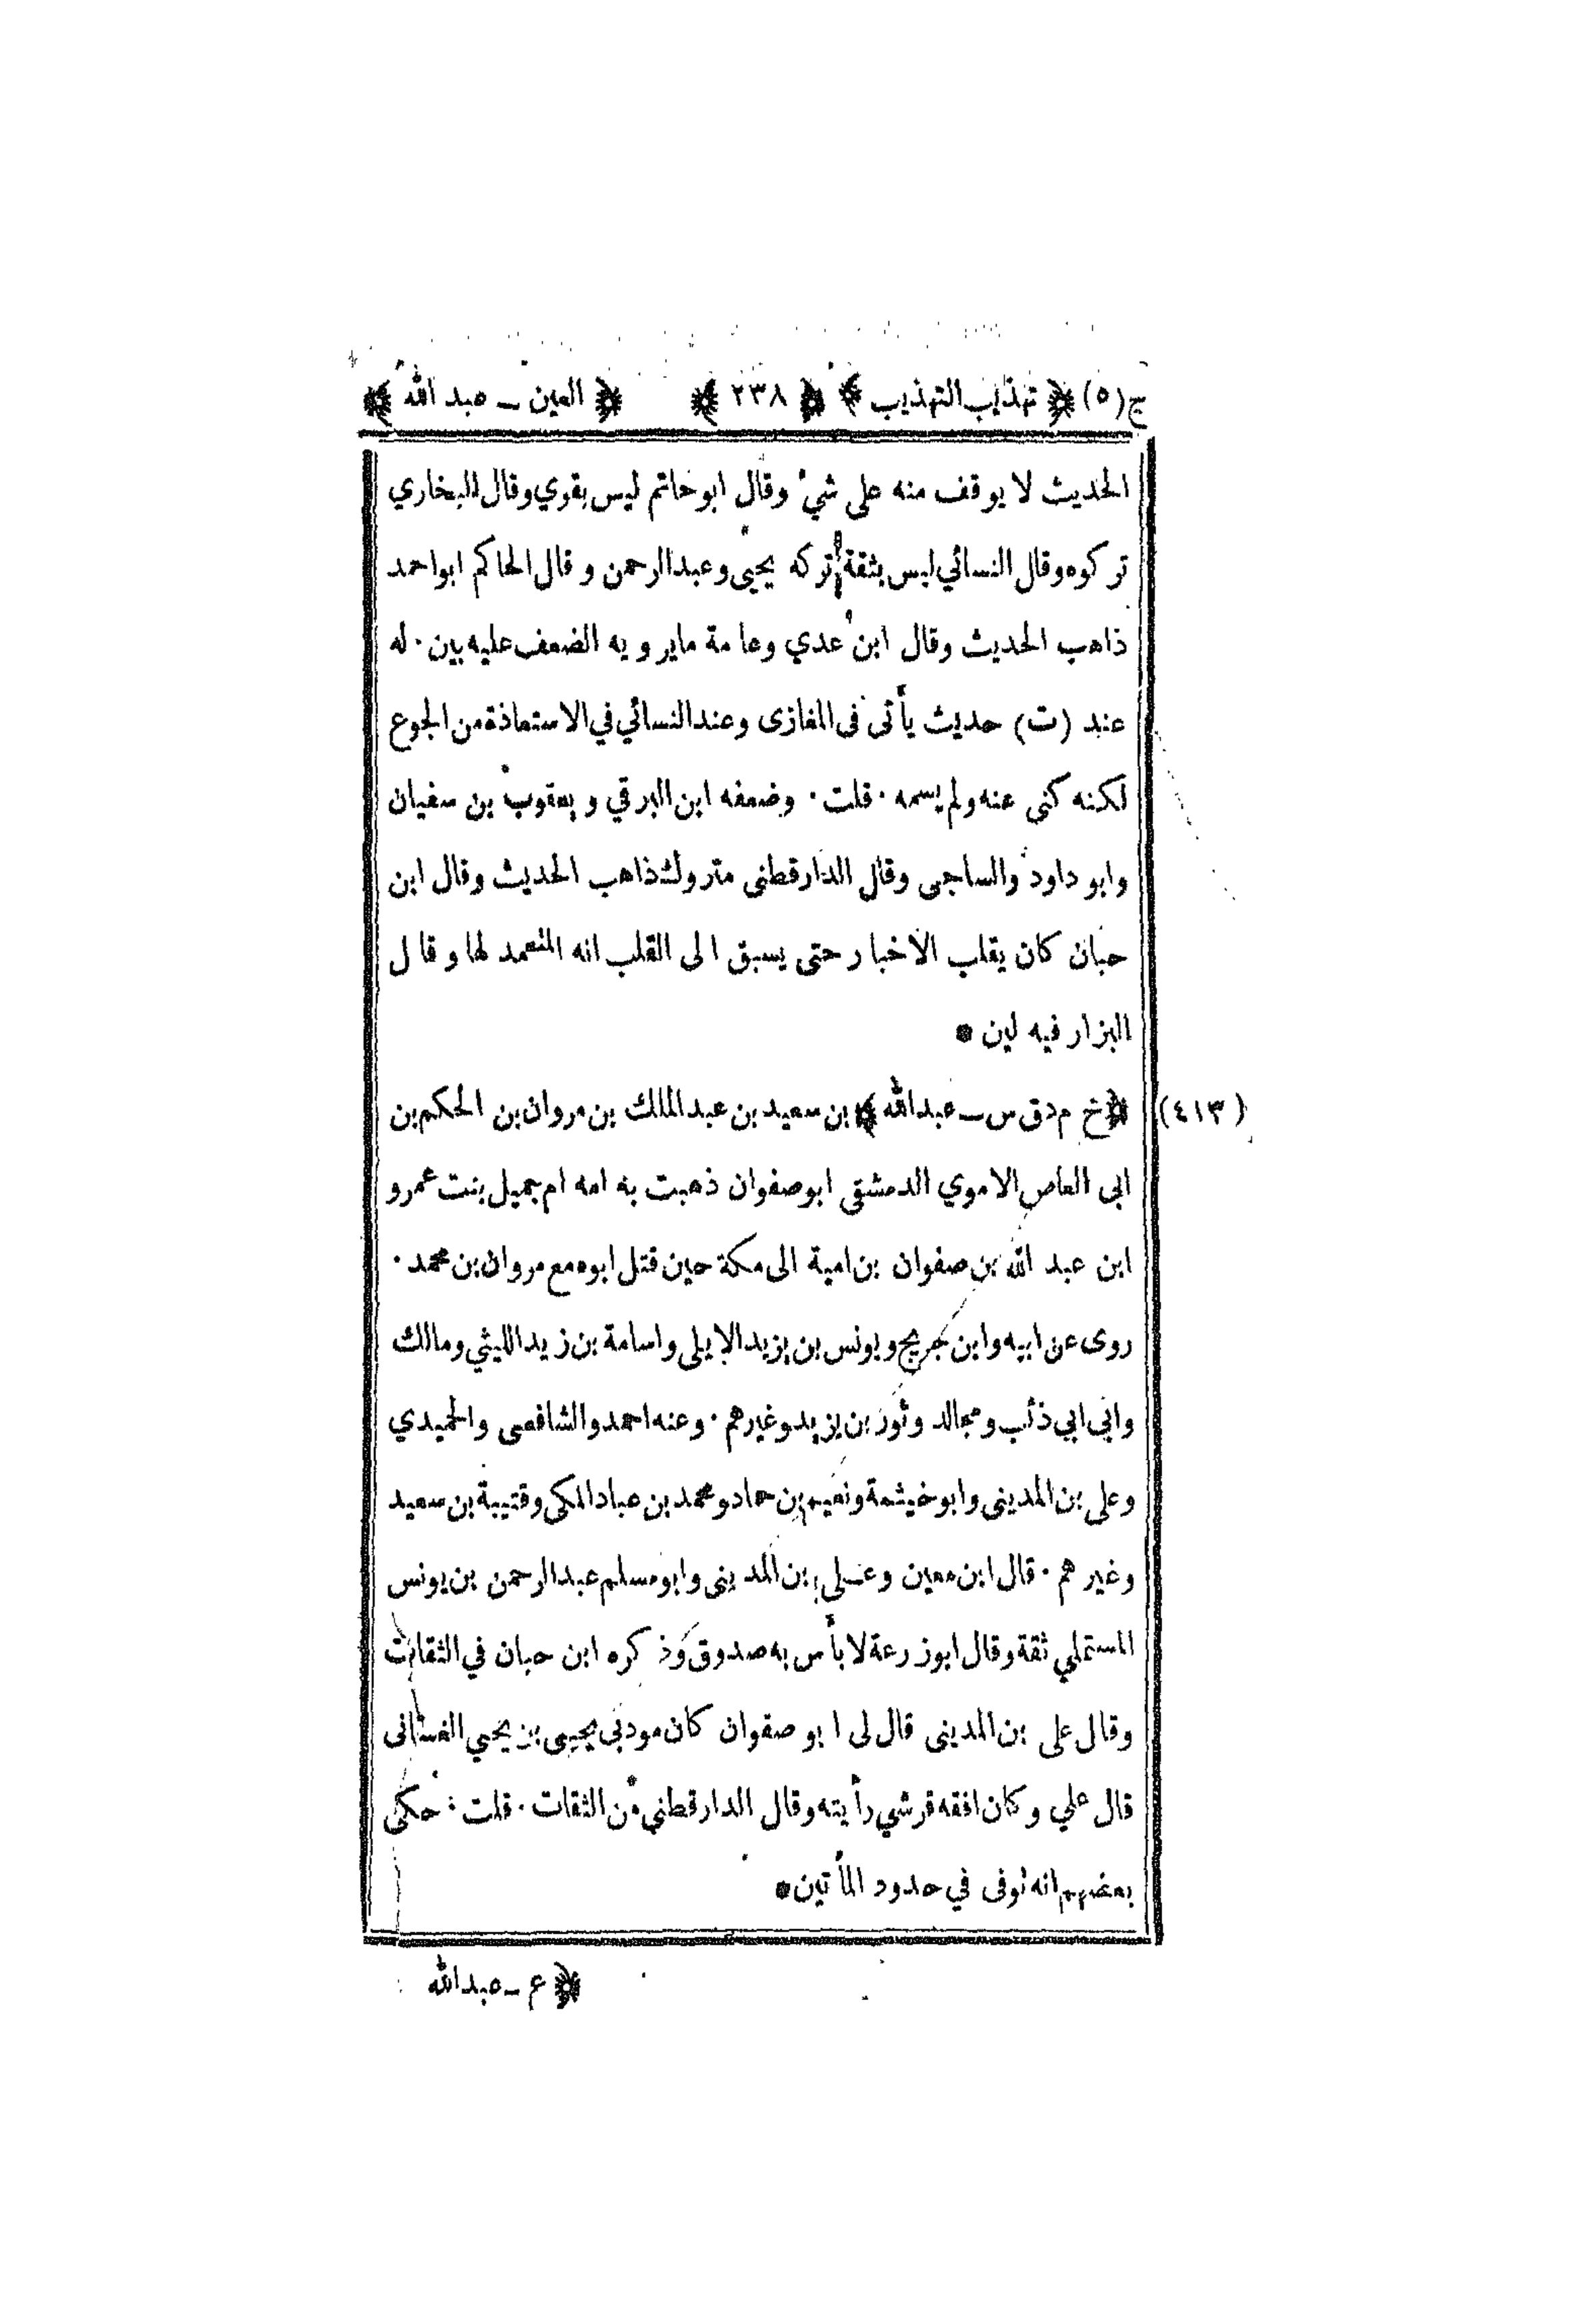 ج(٥) ﴿ تهذيب التهذيب ﴾ ﴿ ٢٣٨ ﴾ ﴿ العين ــ عبد الله ﴾
الحديث لا يوقف منه على شيء وقال ابو حاتم ليس بقوي وقال البخاري
تركوه وقال النسائي ليس بثقة تركه يحيى وعبدالرحمن وقال الحاكم ابواحمد
ذاهب الحديث وقال ابن عدي وعامة مايرويه الضعف عليه بين . له
عند (ت) حديث يأتى فى المغازى وعند النسائي في الاستعاذة من الجوع
لكنه كنى عنه ولم يسمه . قلت . وضعفه ابن البرقي و يعقوب بن سفيان
وابو داود والساجى وقال الدارقطنى متروك ذاهب الحديث وقال ابن
حبان كان يقلب الاخبار حتى يسبق الى القلب انه المتعمد لها وقال
البزار فيه لين *
(٤١٣) ﴿ خ م د ق س ــ عبدالله ﴾ بن سعيد بن عبدالملك بن مروان بن الحكم بن
ابى العاص الاموي الدمشقى ابوصفوان ذهبت به امه ام جميل بنت عمرو
ابن عبد الله بن صفوان بن امية الى مكة حين قتل ابوه مع مروان بن محمد .
روى عن ابيه وابن جريج و يونس بن يزيد الايلى واسامة بن زيد الليثي ومالك
وابى ابي ذئب ومجالد وثور بن يزيد وغيرهم . وعنه احمد والشافعى والحميدي
وعلى بن المدينى وابوخيثمة ونعيم بن حماد ومحمد بن عباد المكى وقتيبة بن سعيد
وغيرهم . قال ابن معين وعلى بن المدينى وابومسلم عبدالرحمن بن يونس
المستملي ثقة وقال ابوزرعة لا بأس به صدوق وذكره ابن حبان في الثقات
وقال على بن المدينى قال لى ابو صفوان كان مودبى يحيى بن يحيي الغسانى
قال علي وكان افقه قرشي رأيته وقال الدارقطني من الثقات . قلت : حكى
بعضهم انه توفى في حدود المأتين *
﴿ ع ــ عبدالله